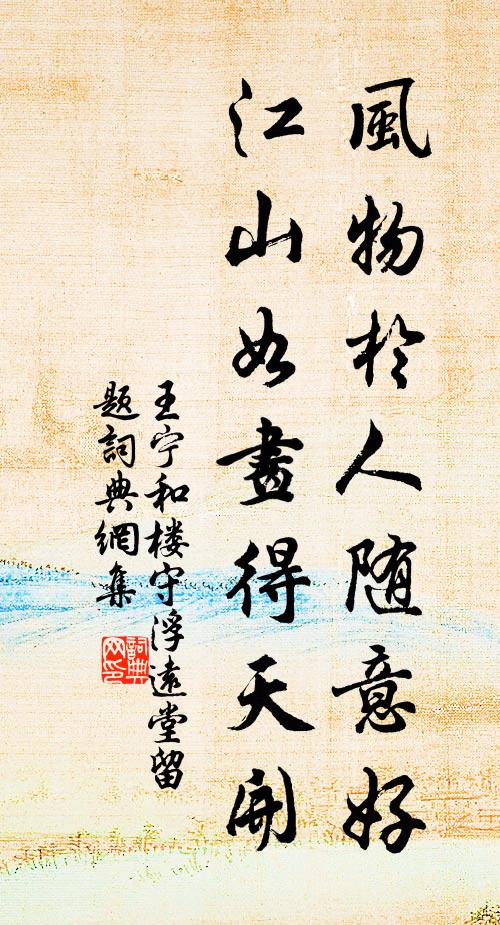 風物於人随意好
江山如畫得天開
王宁和楼守浮遠堂留
題詞典網集
詞典
网印